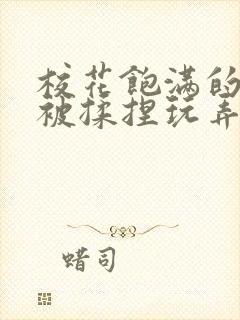 校花饱满的
被揉捏玩弄
蜡司